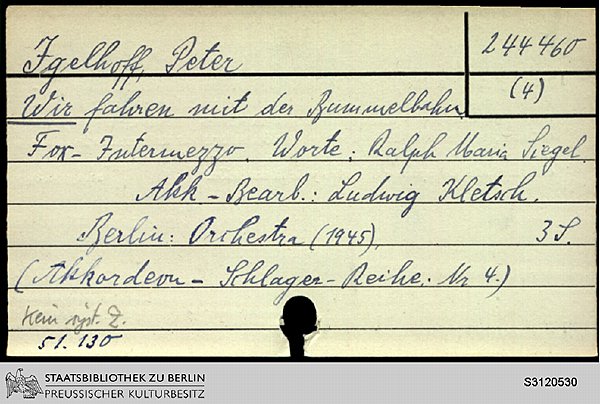 Igelhoff, Peter
244460
(4)
Wir fahren mit der Bummelbahn
Fox-Intermezzo. Worte: Ralph Maria Siegel.
Akk-Bearb.: Ludwig Kletsch.
Berlin: Orchestra (1945). 3 S.
(Akkordeon-Schlager-Reihe. Nr 4.)
Kein syst. Z.
51. 130
STAATSBIBLIOTHEK ZU BERLIN
PREUSSISCHER KULTURBESITZ
S3120530